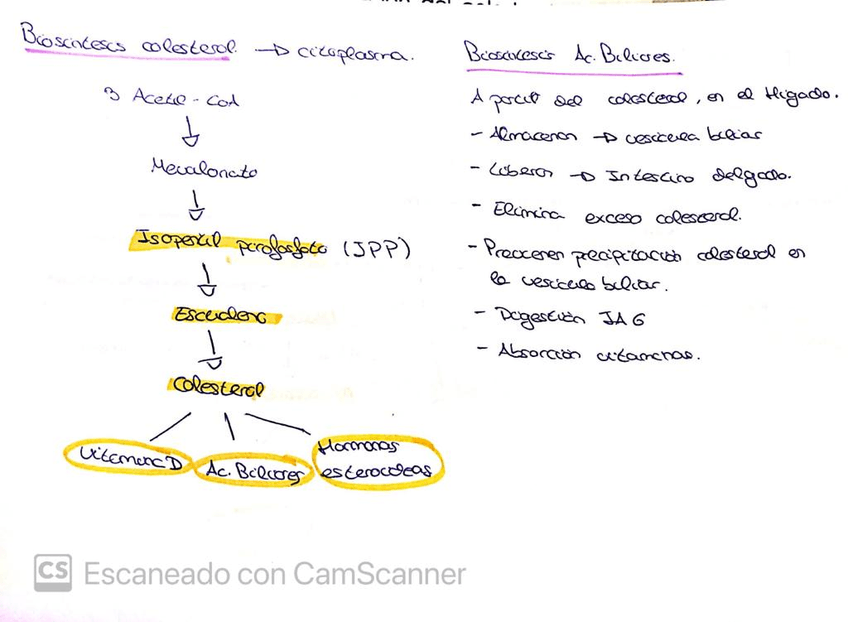 Biosíntesis colesterol → citoplasma.
3 Acetil-CoA
↓
Mevalonato
↓
Isopentil pirofosfato (IPP)
↓
Escualeno
↓
Colesterol
Vitamina D
Ac. Biliares
Hormonas
esteroideas
Biosíntesis Ac. Biliares.
A partir del colesterol, en el Hígado.
- Almacenan → vesícula biliar
- Liberan → Intestino delgado.
- Elimina exceso colesterol.
- Previenen precipitación colesterol en
la vesícula biliar.
- Digestión TAG
- Absorción vitaminas.
CS Escaneado con CamScanner